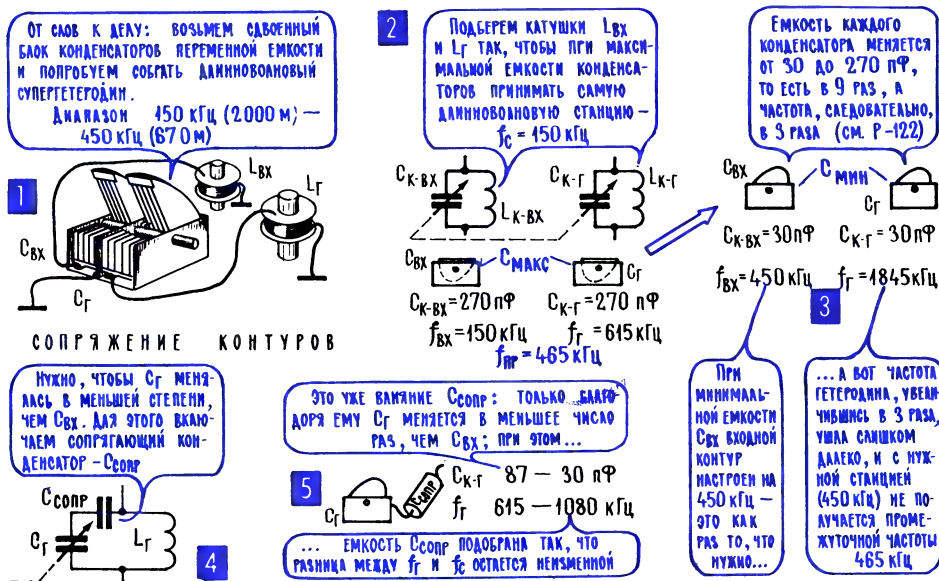 От слов к делу: возьмем сдвоенный
блок конденсаторов переменной емкости
и попробуем собрать длинноволновый
супергетеродин.
Диапазон 150 кГц (2000 м) —
450 кГц (670 м)
1
Lвх
Lг
Cвх
Cг
СОПРЯЖЕНИЕ КОНТУРОВ
2
Подберем катушки Lвх
и Lг так, чтобы при макси-
мальной емкости конденса-
торов принимать самую
длинноволновую станцию —
fс = 150 кГц
Cк-вх
Lк-вх
Cк-г
Lк-г
Cвх
Cмакс
Cг
Cк-вх = 270 пФ
Cк-г = 270 пФ
fвх = 150 кГц
fг = 615 кГц
fпр = 465 кГц
Емкость каждого
конденсатора меняется
от 30 до 270 пФ,
то есть в 9 раз, а
частота, следовательно,
в 3 раза (см. Р-122)
Cвх
Cмин
Cг
Cк-вх = 30 пФ
Cк-г = 30 пФ
fвх = 450 кГц
fг = 1845 кГц
3
При
минималь-
ной емкости
Cвх входной
контур
настроен на
450 кГц —
это как
раз то, что
нужно...
... а вот частота
гетеродина, увели-
чившись в 3 раза,
ушла слишком
далеко, и с нуж-
ной станцией
(450 кГц) не по-
лучается проме-
жуточной частоты
465 кГц
Нужно, чтобы Cг меня-
лась в меньшей степени,
чем Cвх. Для этого вклю-
чаем сопрягающий кон-
денсатор – Cсопр
Cсопр
Cг
Lг
4
Это уже влияние Cсопр: только благо-
доря ему Cг меняется в меньшее число
раз, чем Cвх; при этом...
5
Cг
Cсопр
Cк-г 87 — 30 пФ
fг 615 — 1080 кГц
... емкость Cсопр подобрана так, что
разница между fг и fс остается неизменной